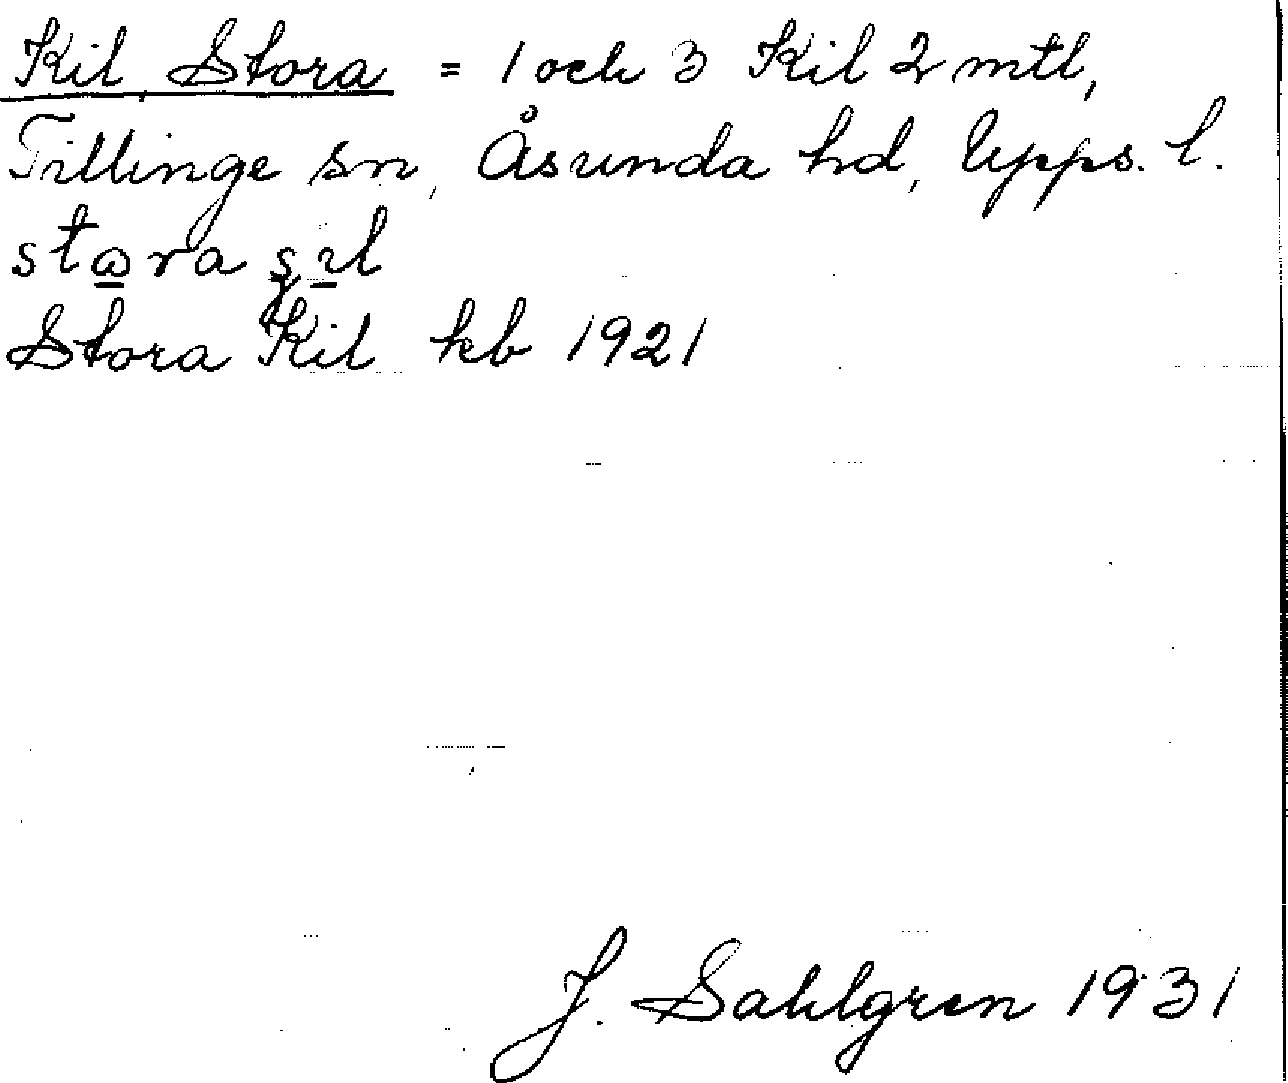 Kil, Stora = 1 och 3 Kil 2 mtl,
Tillinge sn, Åsunda hd, Upps. l.
Stora Kil kb 1921
J. Sahlgren 1931